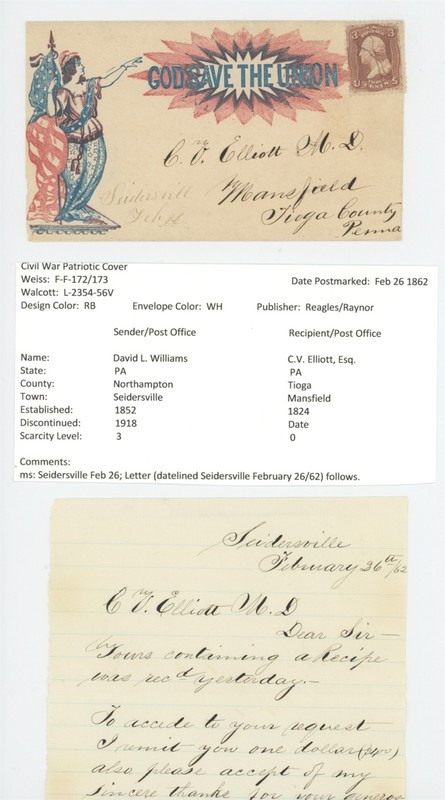 GOD SAVE THE UNION
3 3
U S
C. V. Elliott M. D.
Seidersvill
Feb
Mansfield
Tioga County
Penna
Civil War Patriotic Cover
Weiss: F-F-172/173 Date Postmarked: Feb 26 1862
Walcott: L-2354-56V
Design Color: RB Envelope Color: WH Publisher: Reagles/Raynor
Sender/Post Office Recipient/Post Office
Name: David L. Williams C.V. Elliott, Esq.
State: PA PA
County: Northampton Tioga
Town: Seidersville Mansfield
Established: 1852 1824
Discontinued: 1918 Date
Scarcity Level: 3 0
Comments:
ms: Seidersville Feb 26; Letter (datelined Seidersville February 26/62) follows.
Seidersville
February 26th/62
C V. Elliott M. D
Dear Sir —
Yours containing a Recipe
was recd yesterday. —
To accede to your request
I remit you one dollar
also please accept of my
sincere thanks for your generos